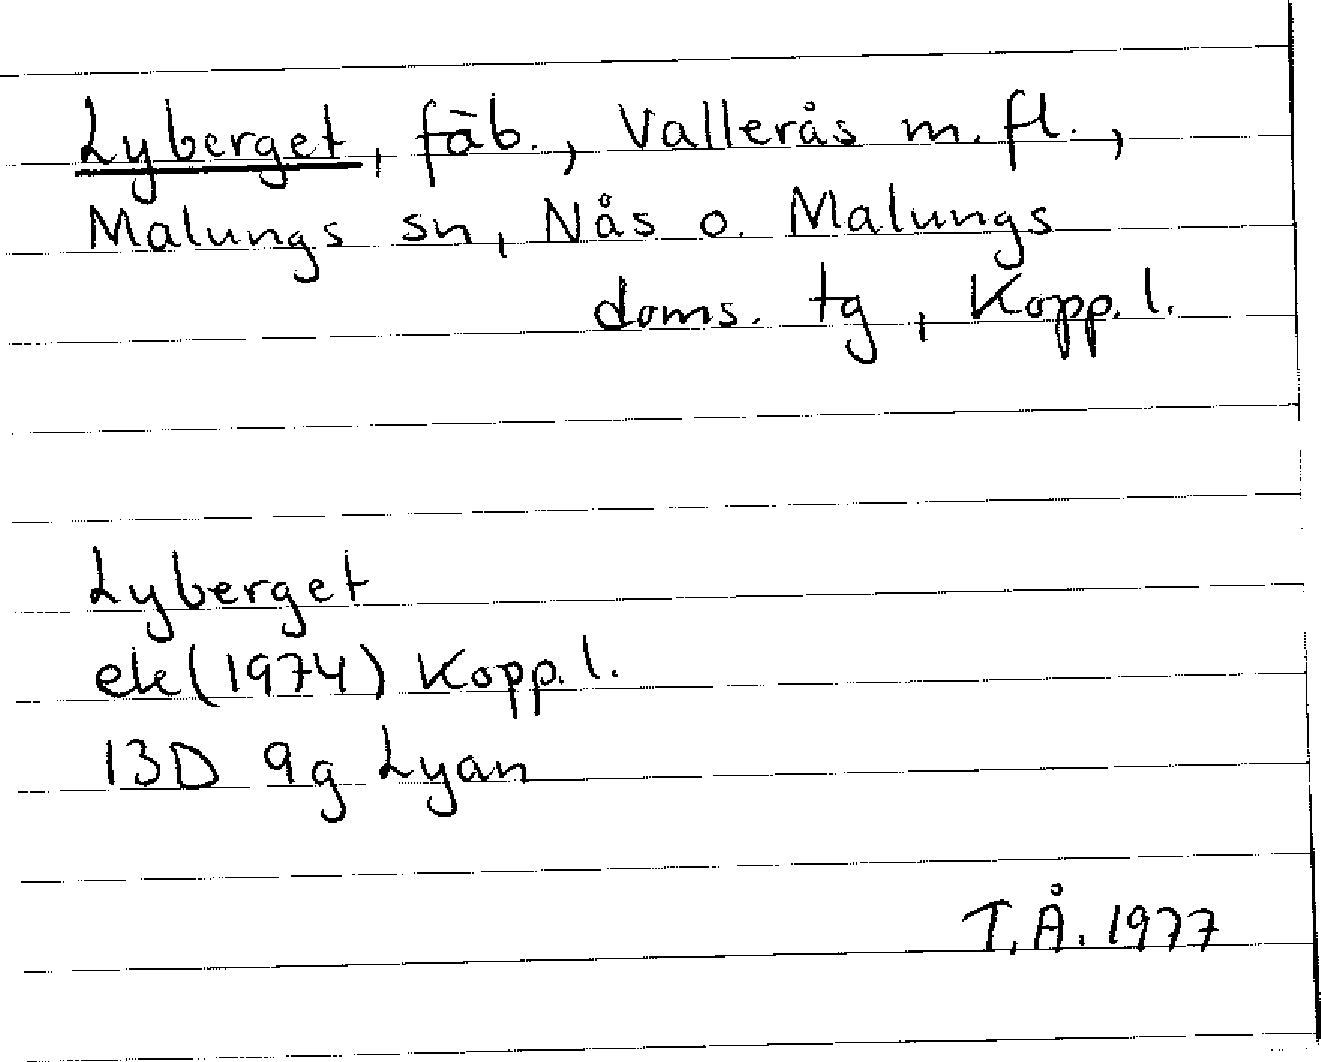 Lyberget, fäb., Vallerås m.fl.,
Malungs sn, Nås o. Malungs
doms. tg, Kopp.l.
Lyberget
ek(1974) Kopp.l.
13D 9g Lyan
T.Å. 1977